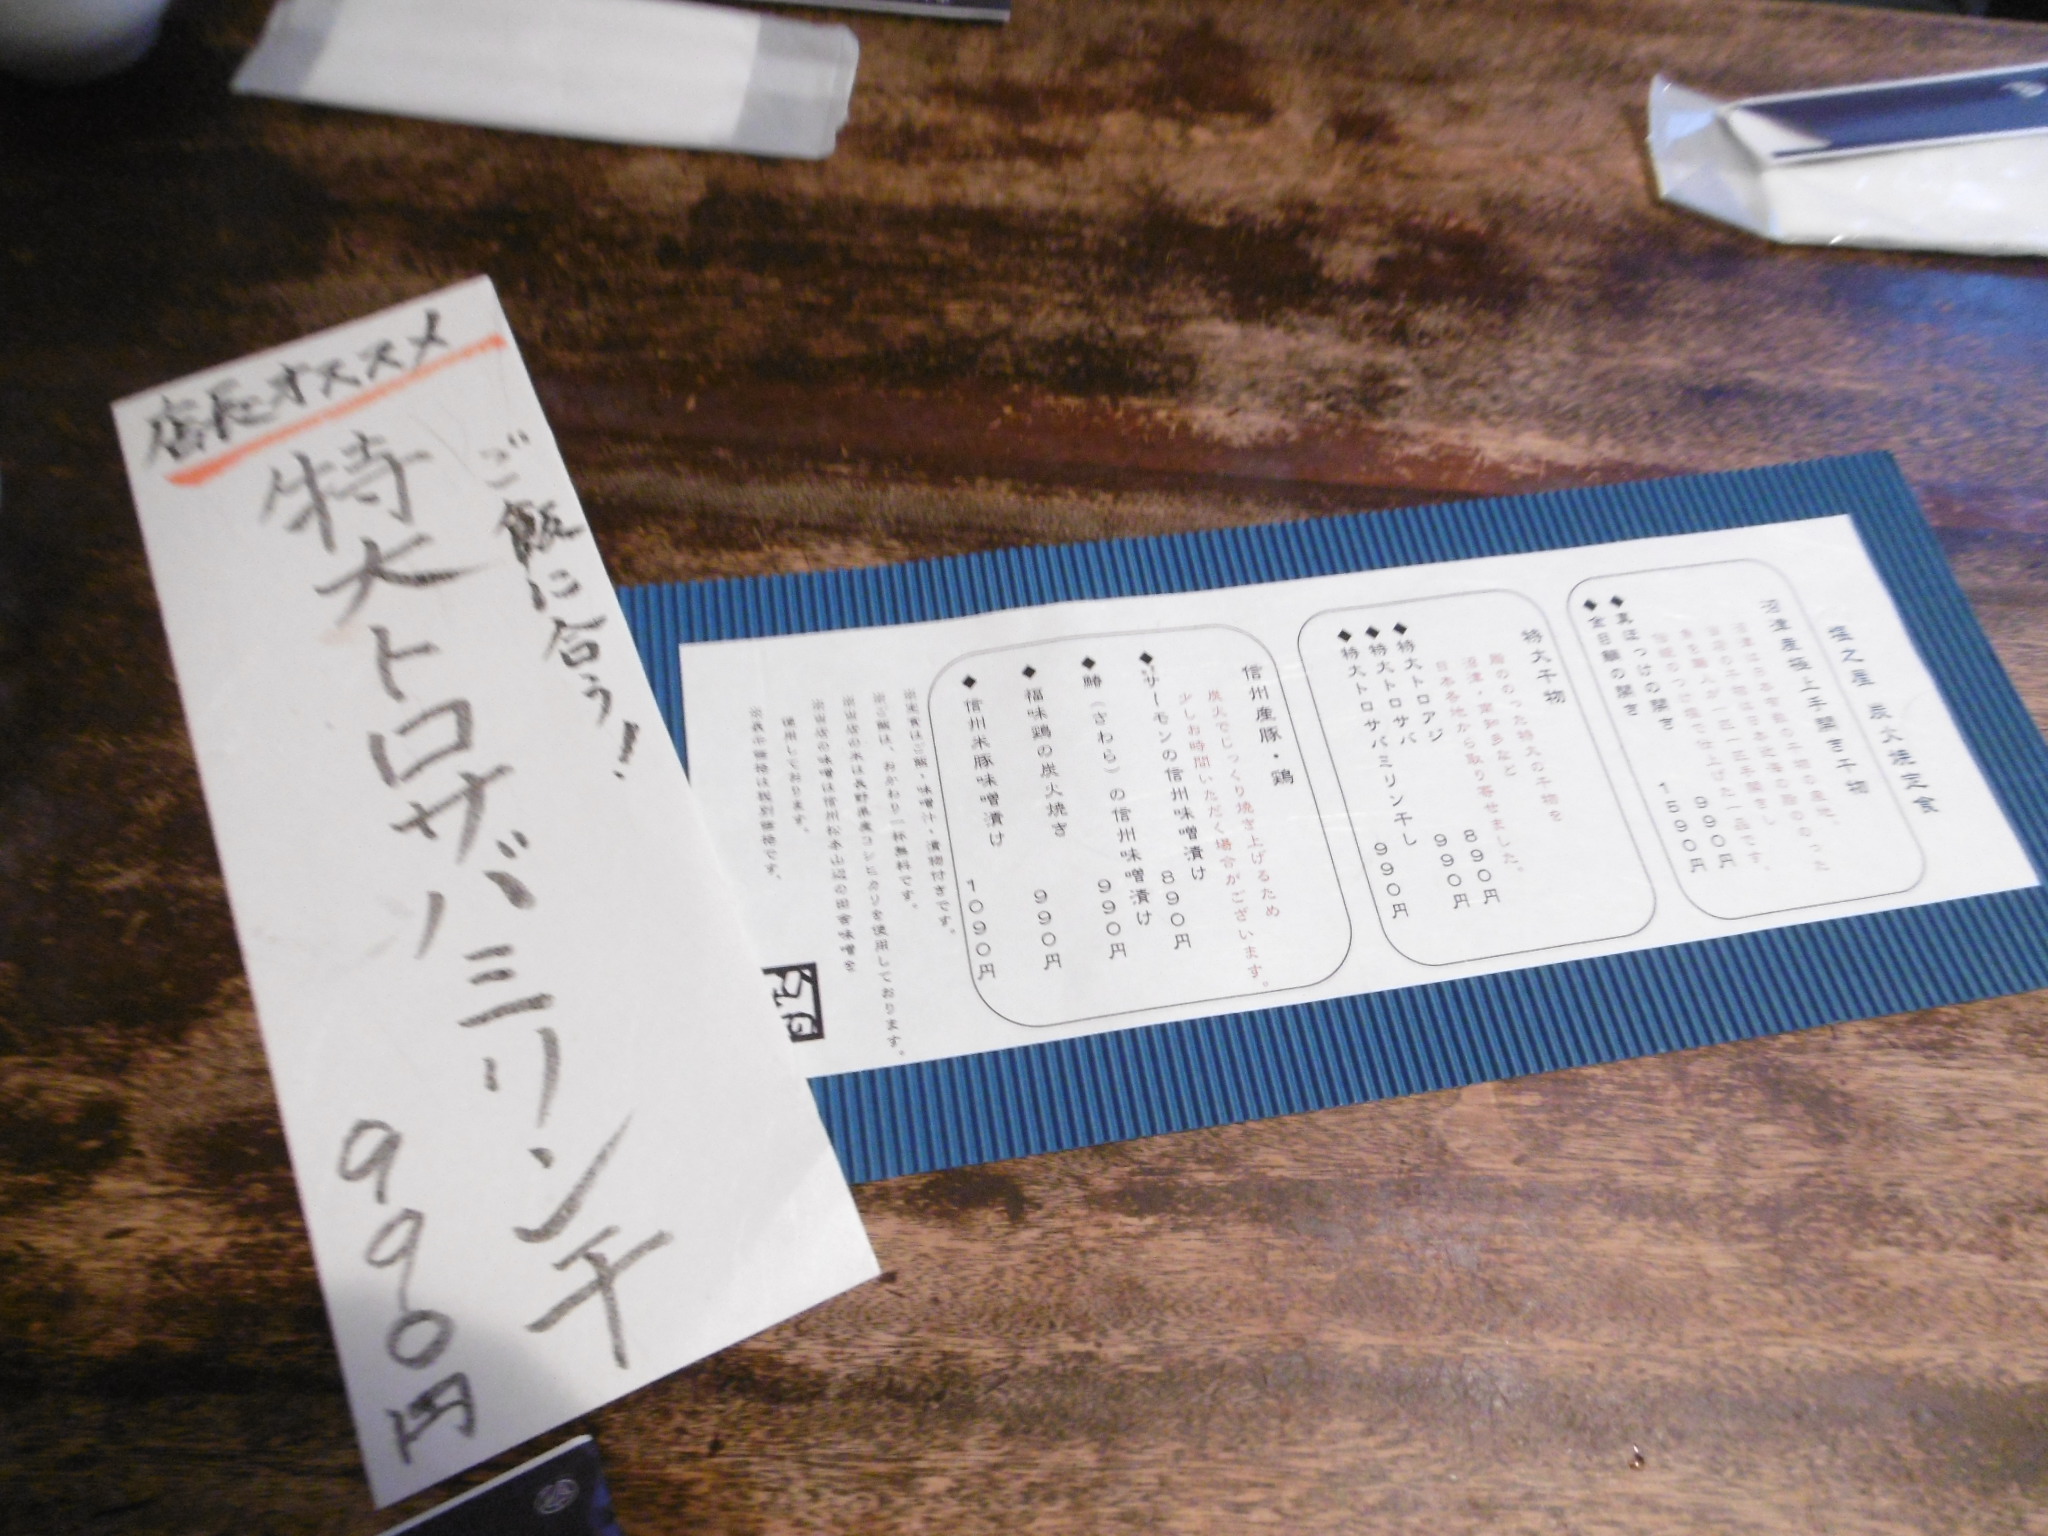 店長オススメ
ご飯に合う!
特大トロサバミリン干
990円
炭火焼定食
沼津産極上手開き干物
◆真ほっけの開き 990円
◆金目鯛の開き 1590円
特大干物
脂ののった特大の干物を
沼津・愛知多など
日本各地から取り寄せました。
◆特大トロアジ 890円
◆特大トロサバ 990円
◆特大トロサバミリン干し 990円
信州産豚・鶏
炭火でじっくり焼き上げるため
少しお時間いただく場合がございます。
◆サーモンの信州味噌漬け 890円
◆鰆(さわら)の信州味噌漬け 990円
◆福味鶏の炭火焼き 990円
◆信州米豚味噌漬け 1090円
※定食はご飯・味噌汁・漬物付きです。
※ご飯は、おかわり一杯無料です。
※当店の米は長野県産コシヒカリを使用しております。
※当店の味噌は信州松本山辺の田舎味噌を
使用しております。
※表示価格は税別価格です。